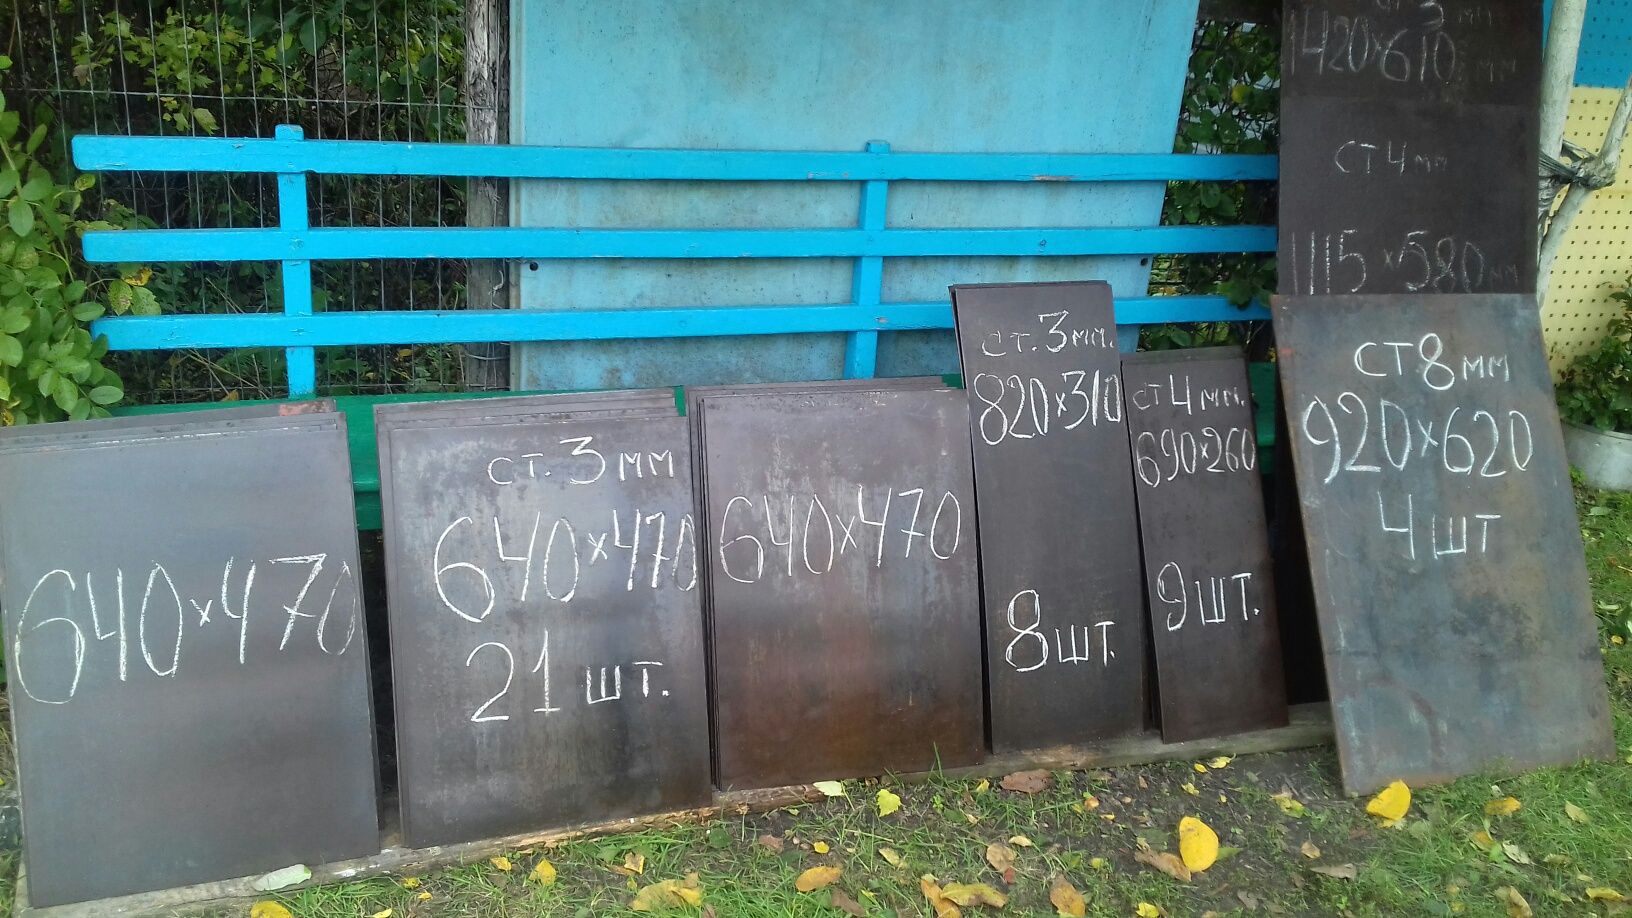 640×470
ст. 3 мм
640×470
21 шт.
640×470
ст. 3 мм.
820×310
8 шт.
ст 4 мм.
690×260
9 шт.
3 мм
1420×610 мм
ст 4 мм
1115×580 мм
ст. 8 мм
920×620
4 шт